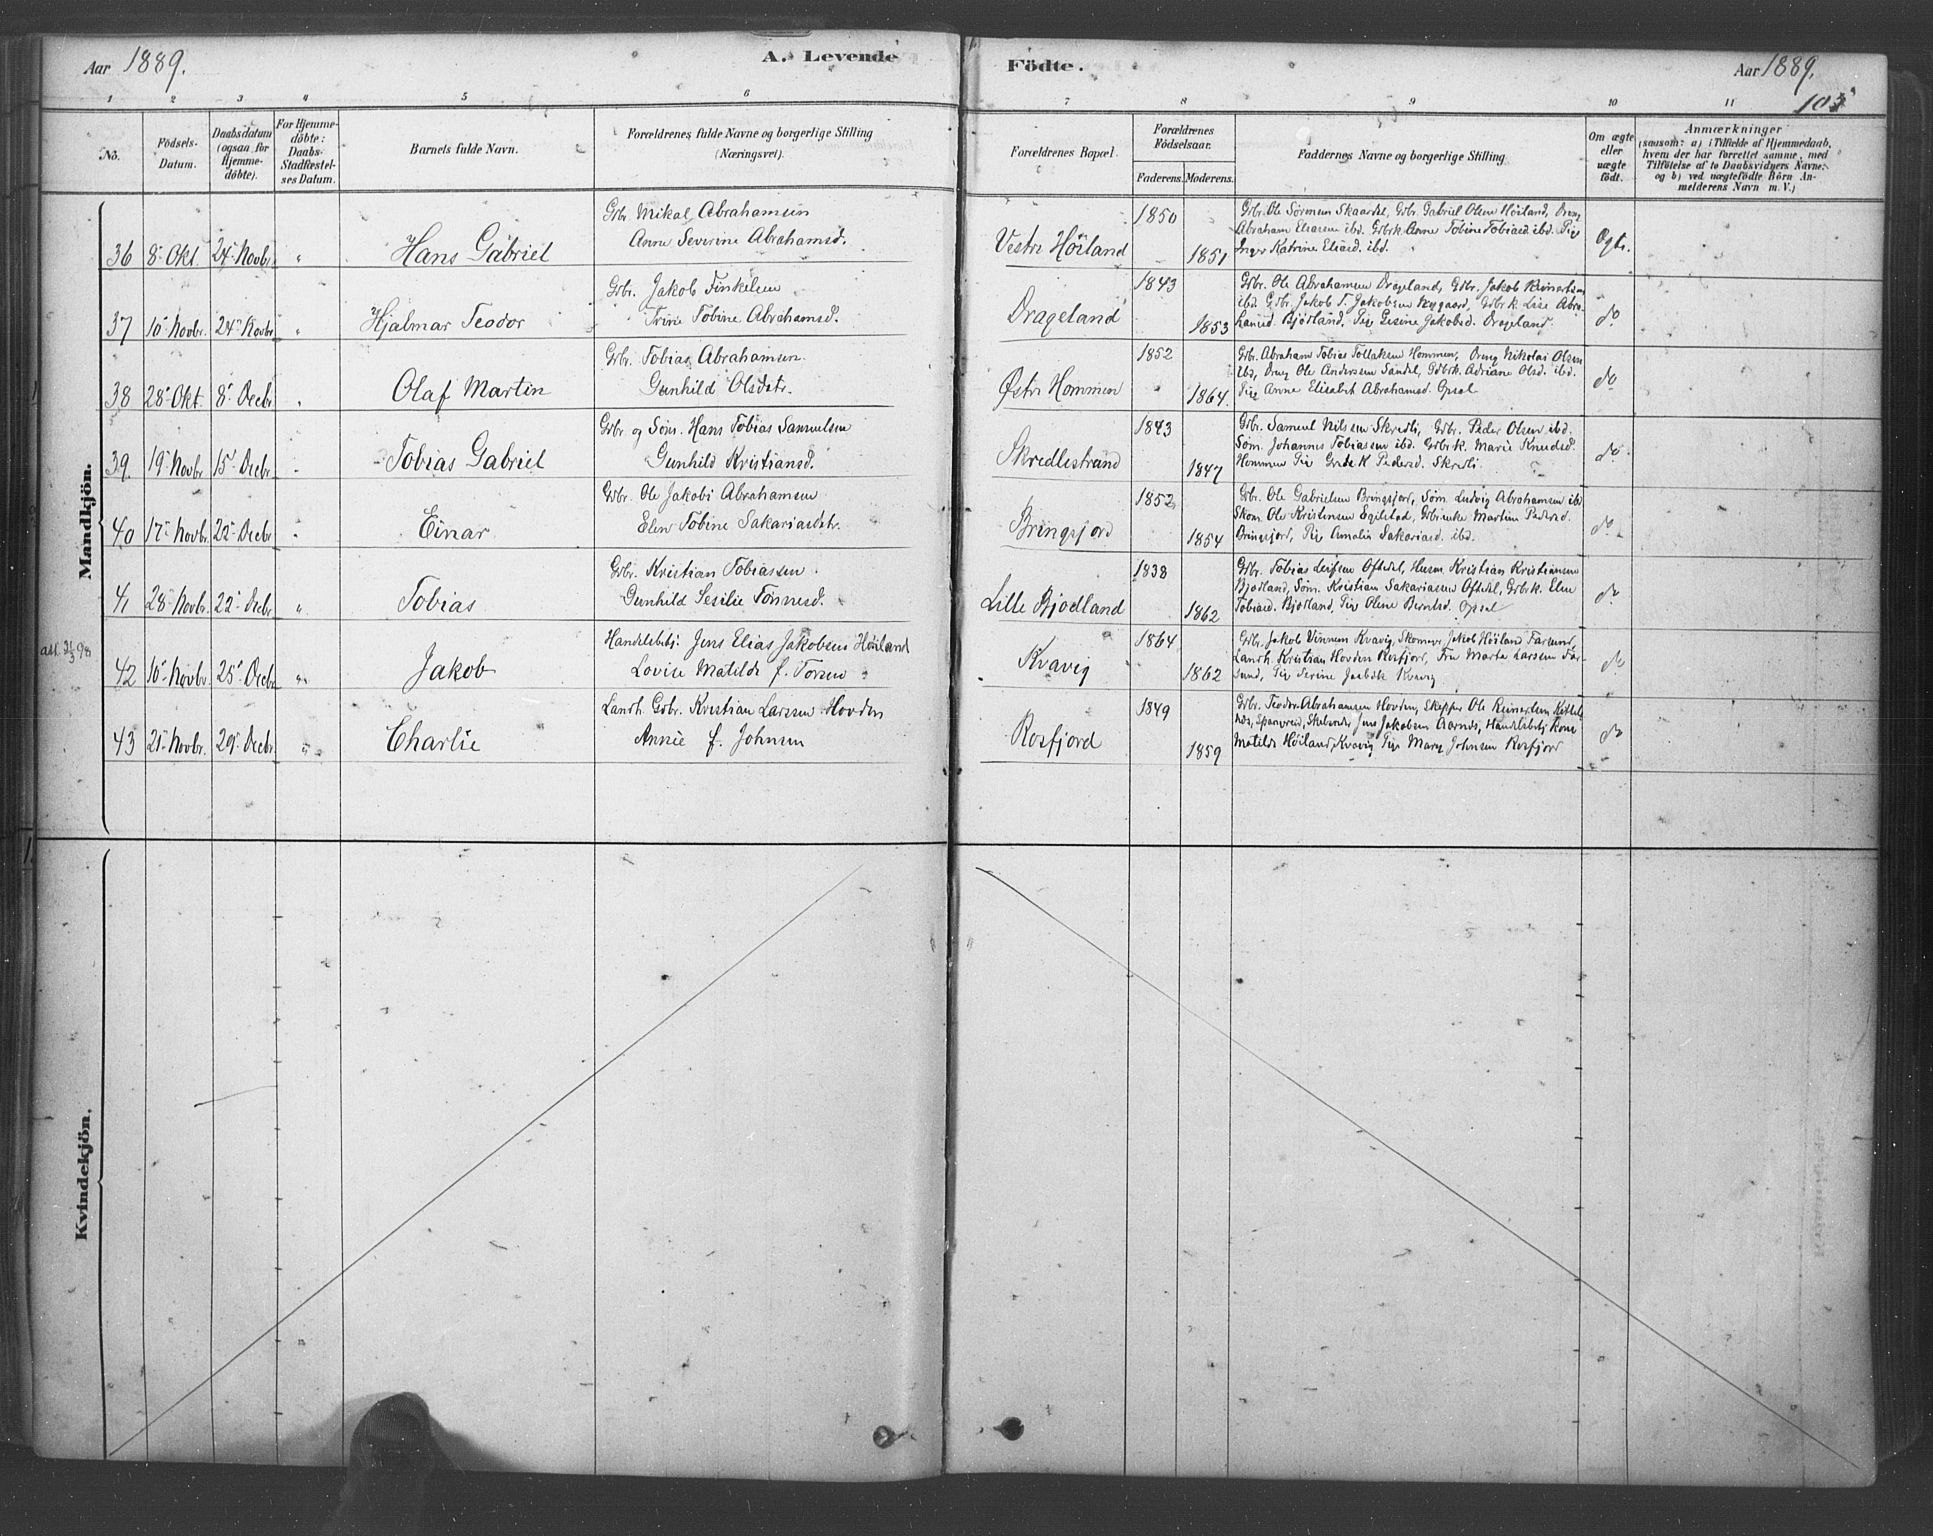 Aar 1889.
A. Levende
Födte.
Aar 1889.
103
1 2 3 4 5 6 7 8 9 10 11
No.
Födsels-
Datum.
Daabsdatum
(ogsaa for
Hjemme-
döbte).
For Hjemme-
döbte:
Daabs-
Stadfæstel-
ses Datum.
Barnets fulde Navn.
Forældrenes fulde Navne og borgerlige Stilling
(Næringsvei).
Forældrenes Bopæl.
Forældrenes
Födselsaar.
Faderens. Moderens.
Faddernes Navne og borgerlige Stilling
Om ægte
eller
uægte
födt.
Anmærkninger
(saasom: a) i Tilfælde af Hjemmedaab,
hvem der har forrettet samme, med
Tilföielse af to Daabsvidners Navne:
og b) ved uægtefödte Börn An-
melderens Navn m. V.)
Mandkjön.
36 8 Okt. 24 Novbr. " Hans Gabriel
Gbr. Mikal Abrahamsen
Anne Severine Abrahamsd.
Vestre Höiland
1850
1851
Gbr. Ole Sörensen Skaardal, Gbr. Gabriel Olsen Höiland, Dreng
Abraham Eliassen ibd. Gbrk. Anne Tobine Tobiasd. ibd. Pige
Inger Katrine Eliasd. ibd.
Ægte.
37 10 Novbr. 24 Novbr. " Hjalmar Teodor
Gbr. Jakob Finkelsen
Trine Tobine Abrahamsd.
Drageland
1843
1853
Gbr. Ole Abrahamsen Drageland, Gbr. Jakob Reinertsen
ibd. Gbr. Jakob T. Jakobsen Nygaard, Gbrk. Lise Abra-
hamsd. Bjørland, Pige Gesine Jakobsd. Drageland.
do.
38 28 Okt. 8 Decbr. " Olaf Martin
Gbr. Tobias Abrahamsen.
Gunhild Olsdtr.
Østre Hommen
1852
1864.
Gbr. Abraham Tobias Tollaksen Hommen, Dreng Nikolai Olsen
ibd, Dreng Ole Andersen Sandal, Gbrk. Adriane Olsd. ibd.
Pige Anne Elisabet Abrahamsd. Opsal
do
39. 19 Novbr. 15 Decbr. " Tobias Gabriel
Gbr. og Søm. Hans Tobias Samuelsen
Gunhild Kristiansd.
Skredlistrand
1843
1847
Gbr. Samuel Nilssen Skredli, Gbr. Peder Olsen ibd.
Søm. Johannes Tobiassen ibd. Gbrk. Marie Knudsd.
Hommen Pige Pedersd. Skredli.
do.
40 17 Novbr. 22 Decbr. " Einar
Gbr. Ole Jakobi Abrahamsen
Elen Tobine Sakariasdtr.
Bringsjord
1852
1854
Gbr. Ole Gabrielsen Bringsjord, Søm. Ludvig Abrahamsen ibd
Skom. Ole Kristensen Egilstad, Gbrenke Martine Pedersd.
Bringsjord, Pige Amalia Sakariasd. ibd.
do.
41 28 Novbr. 22 Decbr. " Tobias
Gbr. Kristian Tobiassen
Gunhild Sesilie Tönnesd.
Lille Bjodland
1838
1862
Gbr. Tobias Leifsen Oftedal, Husm. Kristian Kristiansen
Bjodland, Søm. Kristian Sakariassen Oftedal, Gbrk. Elen
Tobiasd. Bjodland, Pige Oline Berntsd. Opsal
do
att. 21/3 98
42 10 Novbr. 25 Decbr. " Jakob
Handelsbetj. Jens Elias Jakobsen Höiland
Lovise Matilde f. Torsen
Kvavig
1864
1862
Gbr. Jakob Vinnem Kvavig, Skomager Jakob Höiland Farsund,
Landh. Kristian Hovden Rosfjord, Fru Marta Larssen Far-
sund, Pige Serine Kvavig.
do
43 21 Novbr. 29 Decbr. " Charlie
Landh. Gbr. Kristian Larssen Hovden
Annie f. Johnsen
Rosfjord
1849
1859
Gbr. Teodor Abrahamsen Hovden, Skipper Ole Reinertsen
Jens Jakobsen Aarnes, Handelsbetj. Kone
Matilde Höiland, Kvavig Pige Mary Johnsen Rosfjord
do
Kvindekjön.